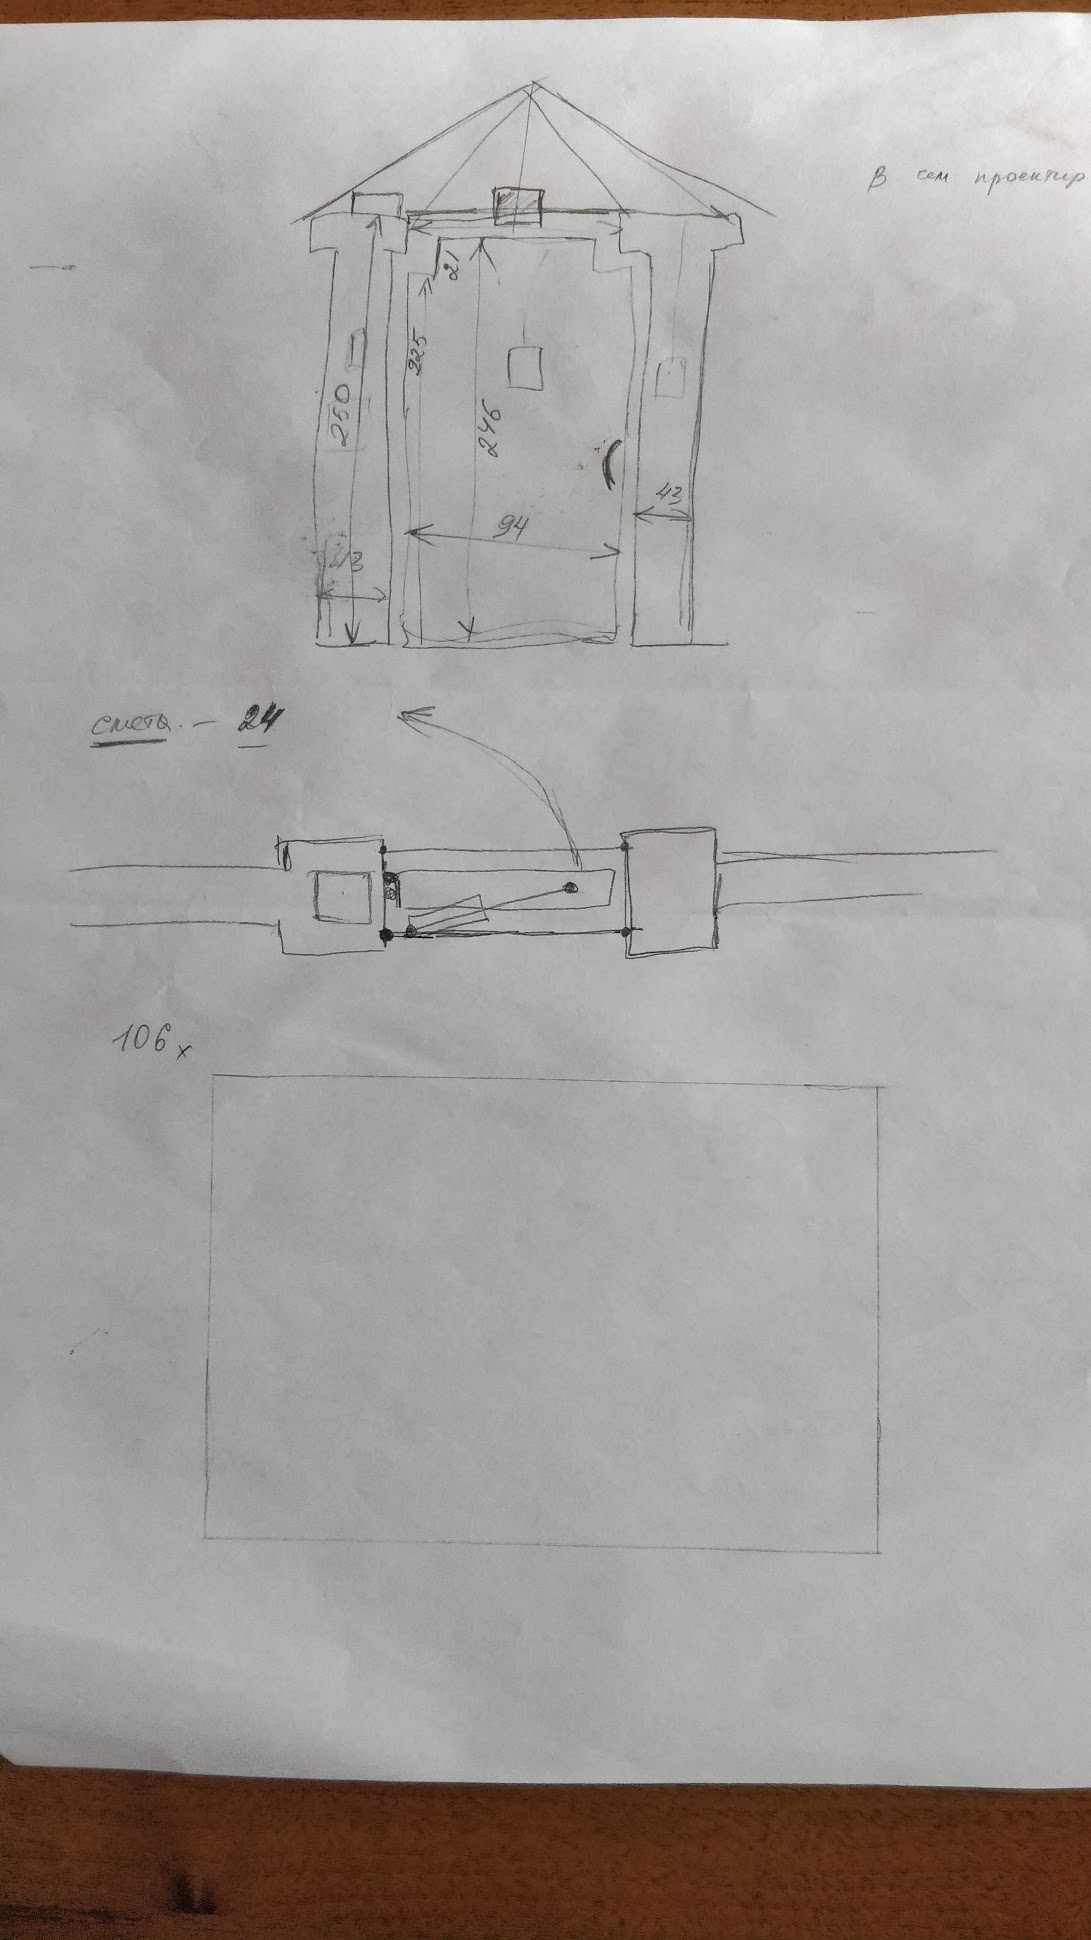 В чем проектир
21
225
250
246
43
94
43
смета. - 24
106 х